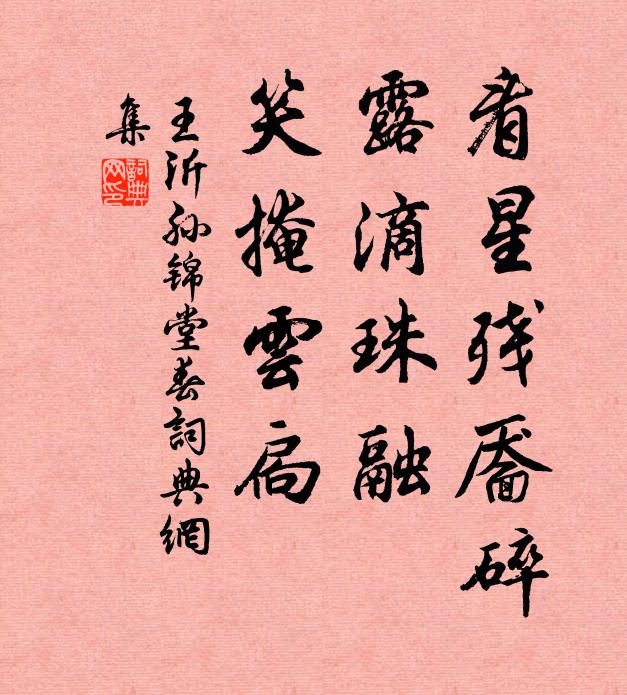 看星残靥碎
露滴珠融
笑掩雲扃
王沂孙锦堂春詞典網
集
詞典网印